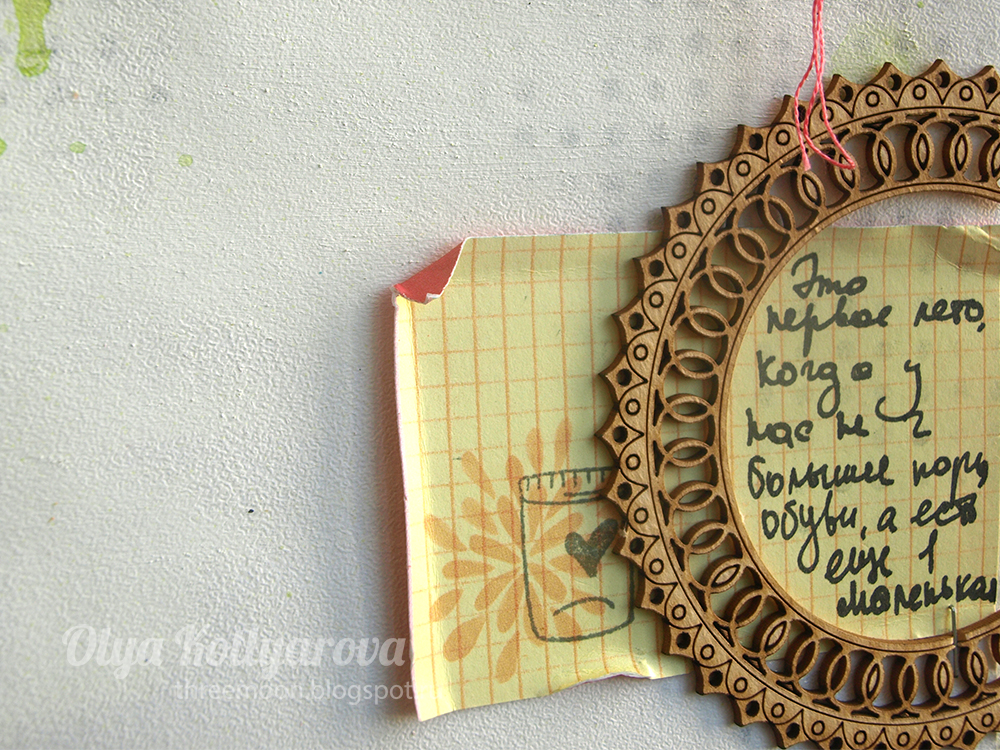 Это
первое лето,
когда у
нас не 2
большие пары
обуви, а есть
еще 1
маленькая
Olya Kotlyarova
threemoon.blogspot